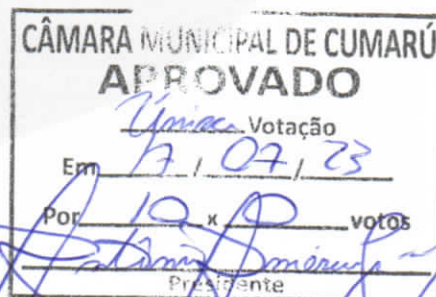 CÂMARA MUNICIPAL DE CUMARÚ
APROVADO
Única Votação
Em 17 / 07 / 23
Por 10 x 0 votos
Antônio
Presidente